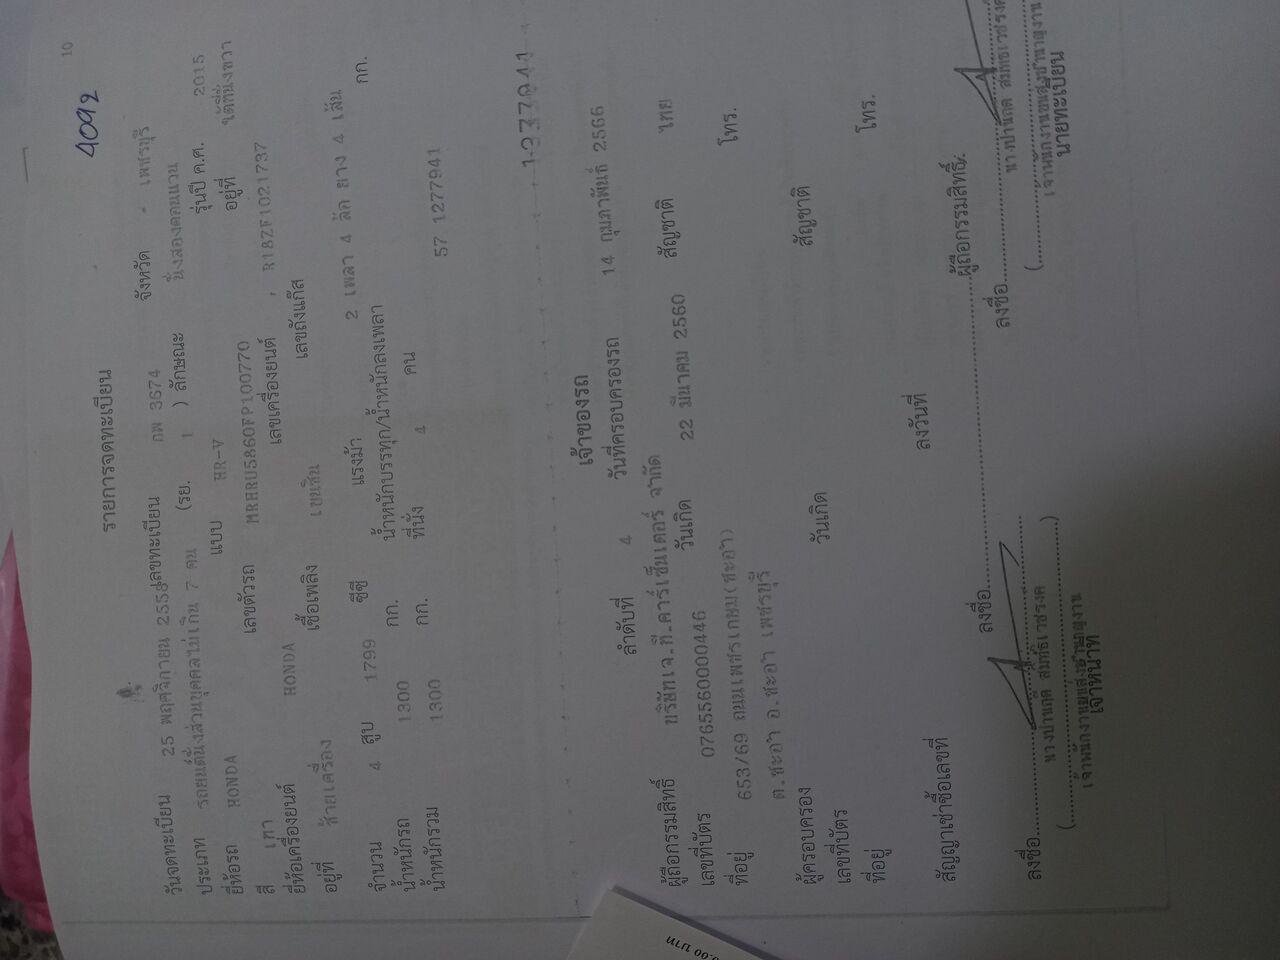 10
4092
รายการจดทะเบียน
วันจดทะเบียน 25 พฤศจิกายน 2558 เลขทะเบียน กพ 3674 จังหวัด เพชรบุรี
ประเภท รถยนต์นั่งส่วนบุคคลไม่เกิน 7 คน (รย. 1 ) ลักษณะ นั่งสองตอนแวน
ยี่ห้อรถ HONDA แบบ HR-V รุ่นปี ค.ศ. 2015
สี เทา เลขตัวรถ MRHRU5860FP100770 อยู่ที่ ใต้ที่นั่งขวา
ยี่ห้อเครื่องยนต์ HONDA เลขเครื่องยนต์ R18ZF1021737
อยู่ที่ ซ้ายเครื่อง เชื้อเพลิง เบนซิน เลขถังแก๊ส
จำนวน 4 สูบ 1799 ซีซี แรงม้า 2 เพลา 4 ล้อ ยาง 4 เส้น
น้ำหนักรถ 1300 กก. น้ำหนักบรรทุก/น้ำหนักลงเพลา กก.
น้ำหนักรวม 1300 กก. ที่นั่ง 4 คน 57 1277941
เจ้าของรถ
ลำดับที่ 4 วันที่ครอบครองรถ 14 กุมภาพันธ์ 2566
ผู้ถือกรรมสิทธิ์ บริษัทเจ.ที.คาร์เซ็นเตอร์ จำกัด
เลขที่บัตร 0765560000446 วันเกิด 22 มีนาคม 2560 สัญชาติ ไทย
ที่อยู่ 653/69 ถนนเพชรเกษม(ชะอำ) โทร.
ต.ชะอำ อ.ชะอำ เพชรบุรี
ผู้ครอบครอง
เลขที่บัตร วันเกิด สัญชาติ
ที่อยู่ โทร.
สัญญาเช่าซื้อเลขที่ ลงวันที่
ลงชื่อ ผู้ถือกรรมสิทธิ์
ลงชื่อ ลงชื่อ
เจ้าหน้าที่ นายทะเบียน